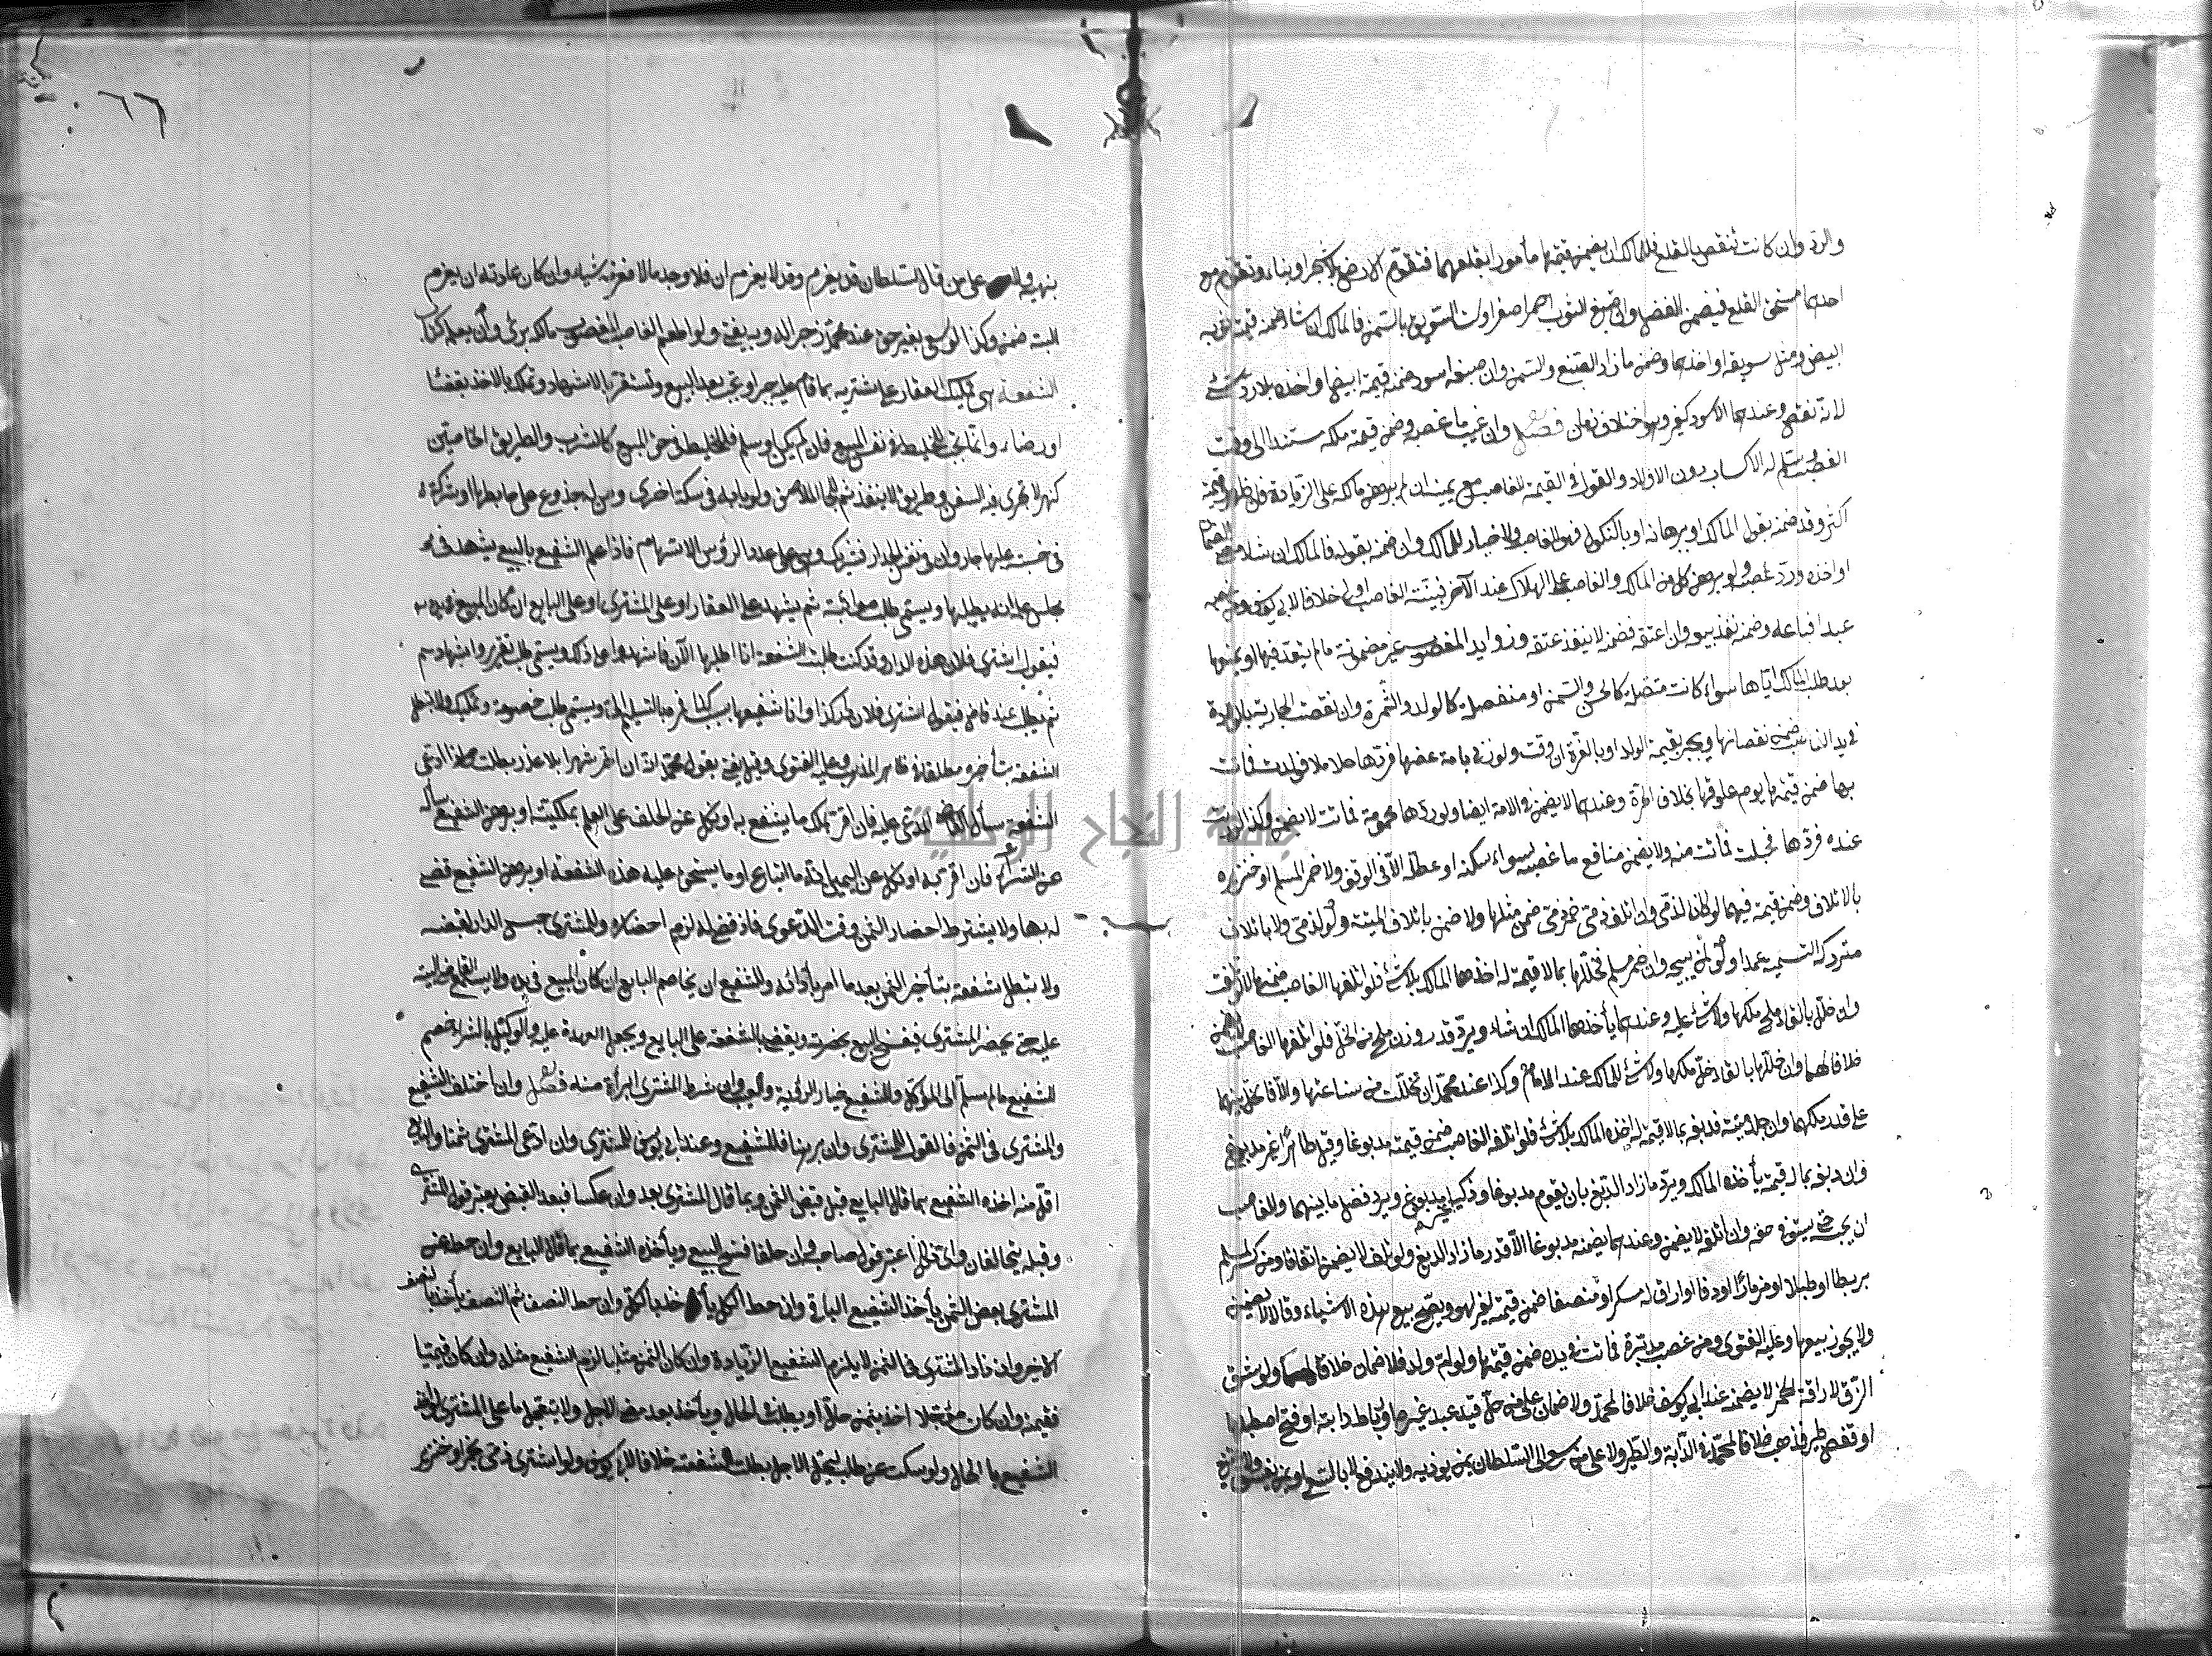 والرد وان كانت تنقص بالقلع فللمالك ان يضمن قيمتهما مأمورا بقلعهما فتقوم الارض بلا شجر او بناء وتقوم مع
احدهما مستحق القلع فيضمن الفضل وان صبغ الثوب احمر او اصفر او لت السويق بالسمن فالمالك ان شاء ضمنه قيمة ثوبه
ابيض ومثل سويقه او اخذهما وضمن ما زاد الصبغ والسمن وان صبغه اسود ضمنه قيمة ابيض او اخذه بلا رد شئ
لانه نقص وعندهما الاسود كغيره وهو اختلاف زمان فصل وان غيب ما غصبه وضمن قيمته ملكه مستندا الى وقت
الغصب وتسلم له الاكساب دون الاولاد والقول في القيمة للغاصب مع يمينه ان لم يبرهن مالكه على الزيادة فان ظهر وقيمته
اكثر وقد ضمنه بقول المالك او ببرهانه او بالنكول فهو للغاصب ولا خيار للمالك وان ضمنه بقوله فالمالك ان شاء امضى الضمان
او اخذه ورد عوضه ولو برهن كل من المالك والغاصب على الهلاك عند الآخر فبينة الغاصب اولى خلافا لابي يوسف ومن غصب
عبدا فباعه وضمنه نفذ بيعه وان اعتقه فضمنه لا ينفذ عتقه وزوايد المغصوب غير مضمونة ما لم يتعد فيها او يمنعها
بعد طلب المالك اياها سواء كانت متصلة كالحسن والسمن او منفصلة كالولد والثمرة وان نقصت الجارية بالولادة
في يد الغاصب ضمن نقصانها ويجبر بقيمة الولد او بالغرة ان وفت ولو زنى بامة غصبها فردها حاملا فولدت فماتت
بها ضمن قيمتها يوم علوقها بخلاف الحرة وعندهما لا يضمن في الامة ايضا ولو ردها محمومة فماتت لا يضمن وكذا لو زنت
عنده فردها فجلدت فماتت منه ولا يضمن منافع ما غصبه سواء سكنه او عطله الا في الوقف ولا خمر المسلم او خنزيره
بالاتلاف وضمن قيمته فيهما لو كانا لذمي وان اتلف ذمي خمر ذمي ضمن مثلها ولا ضمن باتلاف الميتة ولو لذمي ولا باتلاف
متروك التسمية عمدا ولو لمن يبيحه وان غصب خمر مسلم فخللها بما لا قيمة له اخذها المالك بلا شئ فلو اتلفها الغاصب ضمن
وان خلل بالقاء ملح ملكها ولا شئ عليه وعندهما يأخذها المالك ان شاء ويرد قدر وزن الملح من الخل فلو اتلفها الغاصب لا يضمن
خلافا لهما وان خللها بالقاء خل ملكها ولا شئ للمالك عند الامام وكذا عند محمد ان تخللت من ساعتها والا فالخل بينهما
على قدر ملكهما وان جلد ميتة فدبغه بما لا قيمة له اخذه المالك بلا شئ فلو اتلفه الغاصب ضمن قيمته مدبوغا وقيل طاهرا غير مدبوغ
فان دبغه بما له قيمة يأخذه المالك ويرد ما زاد الدبغ بان يقوم مدبوغا وذكيا غير مدبوغ ويرد فضل ما بينهما وللغاصب
ان يحبسه حتى يستوفي حقه وان اتلفه لا يضمن وعندهما يضمنه مدبوغا الا قدر ما زاد الدبغ ولو تلف لا يضمن اتفاقا ومن كسر لمسلم
بربطا او طبلا او مزمارا او دفا او اراق له سكرا او منصفا ضمن قيمته لغير لهو ويصح بيع هذه الاشياء وقالا لا يضمن
ولا يجوز بيعها وعليه الفتوى ومن غصب مدبرة فماتت في يده ضمن قيمتها ولو ام ولد فلا ضمان خلافا لهما ولو شق
الزق لاراقة الخمر لا يضمنه عند ابي يوسف خلافا لمحمد ولا ضمان على من حل قيد عبد غيره او رباط دابته او فتح اصطبلها
او قفص طير فذهب خلافا لمحمد في الدابة والطير ولا على من سعى الى السلطان بمن يؤذيه ولا يندفع الا بالسعي او بمن يفسق ولا يمتنع
بنهيه ولا على من قال لسلطان قد يغرم وقد لا يغرم ان فلانا وجد مالا فغرمه شيئا وان كان عادته ان يغرم
البتة ضمن وكذا لو سعى بغير حق عند محمد زجرا له وبه يفتى ولو اطعم الغاصب المغصوب مالكه برئ وان لم يعلمه كتاب
الشفعة هي تمليك العقار على مشتريه بما قام عليه جبرا وتجب بعد البيع وتستقر بالاشهاد وتملك بالاخذ بقضاء
او رضاء وانما تجب للخليط في نفس المبيع فان لم يكن او سلم فللخليط في حق المبيع كالشرب والطريق الخاصين
كنهر لا تجري فيه السفن وطريق لا ينفذ ثم للجار الملاصق ولو بابه في سكة اخرى ومن له جذوع على حائطها او شركة
في خشبة عليها جار وان في نفس الجدار فشريك وهي على عدد الرؤس لا السهام فاذا علم الشفيع بالبيع يشهد في
مجلس علمه انه يطلبها ويسمى طلب مواثبة ثم يشهد على العقار او على المشتري او على البايع ان كان المبيع في يده
فيقول اشترى فلان هذه الدار وقد كنت طلبت الشفعة انا اطلبها الآن فاشهدوا على ذلك ويسمى طلب تقرير واشهاد
ثم يطلب عند قاض فيقول اشترى فلان دار كذا وانا شفيعها بسبب كذا فمره بالتسليم الي ويسمى طلب خصومة وتمليك ولا تبطل
الشفعة بتأخيره مطلقا في ظاهر المذهب وعليه الفتوى وقيل يفتى بقول محمد انه ان اخر شهرا بلا عذر بطلت واذا ادعى
الشفعة سأل القاضي المدعى عليه فان اقر بملك ما يشفع به او نكل عن الحلف على العلم بملكيته او برهن الشفيع سأله
عن الشراء فان اقر به او نكل عن اليمين انه ما ابتاع او ما يستحق عليه هذه الشفعة او برهن الشفيع قضى
له بها ولا يشترط احضار الثمن وقت الدعوى فاذا قضى له لزم احضاره وللمشتري حبس الدار لقبضه
ولا تبطل شفعته بتأخير الثمن بعد ما امر بأدائه وللشفيع ان يخاصم البايع ان كان المبيع في يده ولا يسمع القاضي البينة
عليه حتى يحضر المشتري فيفسخ البيع بحضرته ويقضي بالشفعة على البايع ويجعل العهدة عليه والوكيل بالشراء خصم
للشفيع ما لم يسلم الى الموكل وللشفيع خيار الرؤية والعيب وان شرط المشتري البرأة منه فصل وان اختلف الشفيع
والمشتري في الثمن فالقول للمشتري وان برهنا فللشفيع وعند ابي يوسف للمشتري وان ادعى المشتري ثمنا والبايع
اقل منه اخذه الشفيع بما قال البايع قبل قبض الثمن وبما قال المشتري بعده وان عكسا فبعد القبض يعتبر قول المشتري
وقبله يتحالفان واي نكل اعتبر قول صاحبه وان حلفا فسخ البيع ويأخذه الشفيع بما قال البايع وان حط عن
المشتري بعض الثمن يأخذ الشفيع الباقي وان حط الكل يأخذ بالكل وان حط النصف ثم النصف يأخذ بالنصف
الاخير وان زاد المشتري في الثمن لا يلزم الشفيع الزيادة وان كان الثمن مثليا لزم الشفيع مثله وان كان قيميا
فقيمته وان كان مؤجلا اخذ بثمن حال او يطلب في الحال ويأخذ بعد مضي الاجل ولا يتعجل ما على المشتري لو اخذ
الشفيع بالحال ولو سكت عن طلب ليحل الاجل بطلت شفعته خلافا لابي يوسف ولو اشترى ذمي بخمر او خنزير
٦٦
جامعة النجاح الوطنية